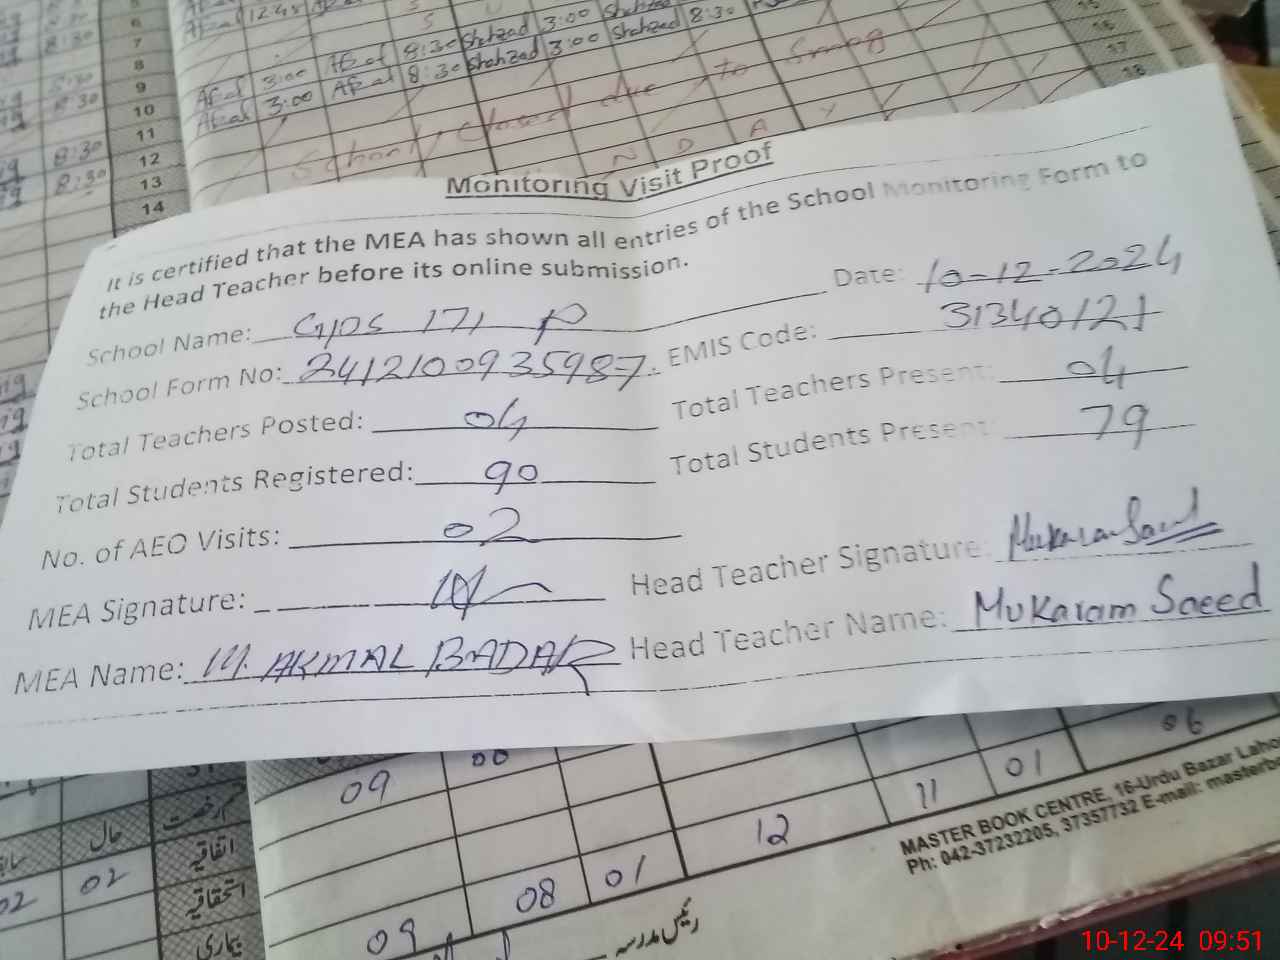 5
6
7
8
9
10
11
12
13
14
8:30
8:30
8:30
8:30
Afzal 3:00 Afzal 8:30 Shahzad 3:00 Shahzad 8:30
Afzal 3:00 Afzal 8:30 Shahzad 3:00 Shahzad 8:30
School Closed due to Smog
N D A Y
15
16
17
18
Monitoring Visit Proof
It is certified that the MEA has shown all entries of the School Monitoring Form to
the Head Teacher before its online submission.
Date: 10-12-2024
School Name: GPS 171 P
EMIS Code: 31340121
School Form No: 2412100935987
Total Teachers Posted: 04
Total Teachers Present: 04
Total Students Registered: 90
Total Students Present: 79
No. of AEO Visits: 02
MEA Signature:
Head Teacher Signature: Mukaram Saeed
MEA Name: M. AKMAL BADAR
Head Teacher Name: Mukaram Saeed
09 08 06
12 11 01
09 08 01
حال
02 02
اتفاقیہ
استحقاقیہ
بیماری
رئیس مدرسہ
MASTER BOOK CENTRE, 16-Urdu Bazar Laho
Ph: 042-37232205, 37357732 E-mail: masterbo
10-12-24 09:51